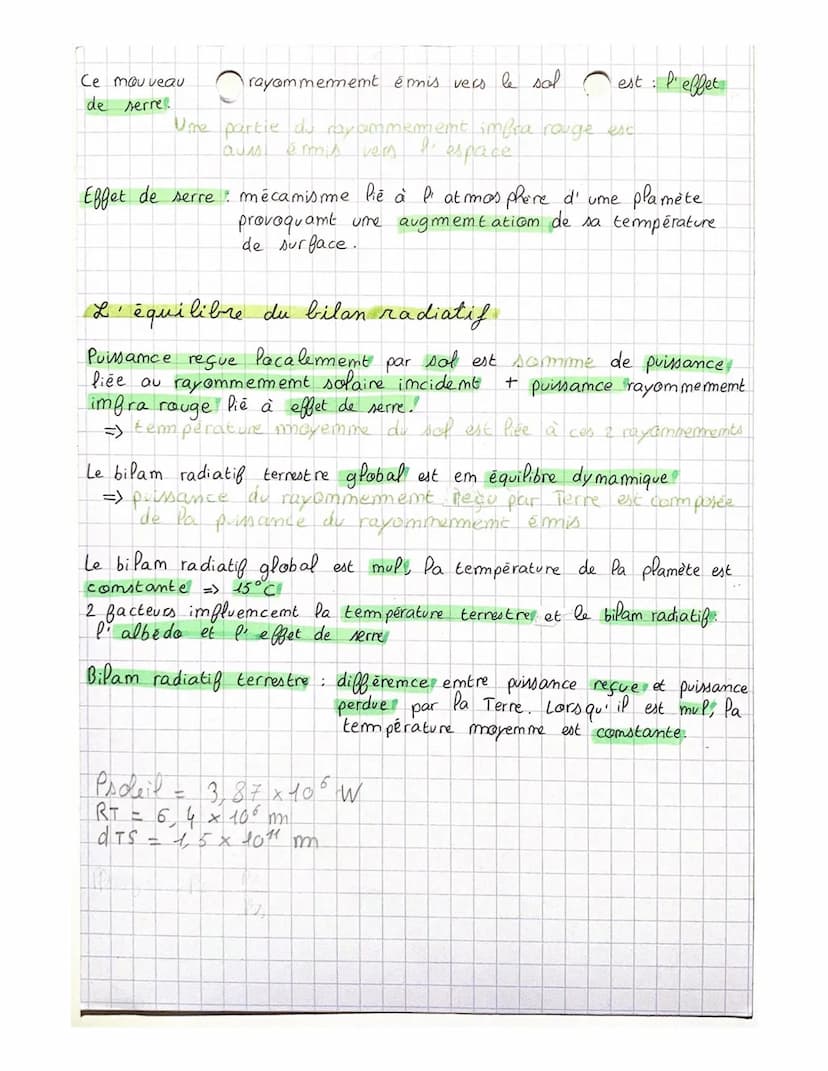 Ce nouveau rayonnement émis vers le sol est : l'effet
de serre.
Une partie du rayonnement infra rouge est
aussi émis vers l'espace
Effet de serre : mécanisme lié à l'atmosphère d'une planète
provoquant une augmentation de sa température
de surface.
L'équilibre du bilan radiatif
Puissance reçue localement par sol est somme de puissance
liée au rayonnement solaire incident + puissance rayonnement
infra rouge lié à effet de serre.
=> température moyenne du sol est liée à ces 2 rayonnements
Le bilan radiatif terrestre global est en équilibre dynamique
=> puissance du rayonnement reçu par Terre est composée
de la puissance du rayonnement émis
Le bilan radiatif global est nul, la température de la planète est
constante => 15°C
2 facteurs influencent la température terrestre et le bilan radiatif:
l'albédo et l'effet de serre
Bilan radiatif terrestre : différence entre puissance reçue et puissance
perdue par la Terre. Lorsqu'il est nul, la
température moyenne est constante.
Psoleil = 3,87 x 10⁶ W
RT = 6,4 x 10⁶ m
dTS = 1,5 x 10¹¹ m